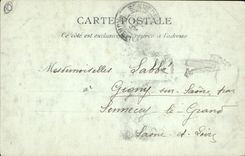 CARTE POSTALE
Ce côté est exclusivement réservé à l'adresse
Mesdemoiselles Sabbé
à
Gigny sur Saône par
Sennecey le Grand
Saône et Loire